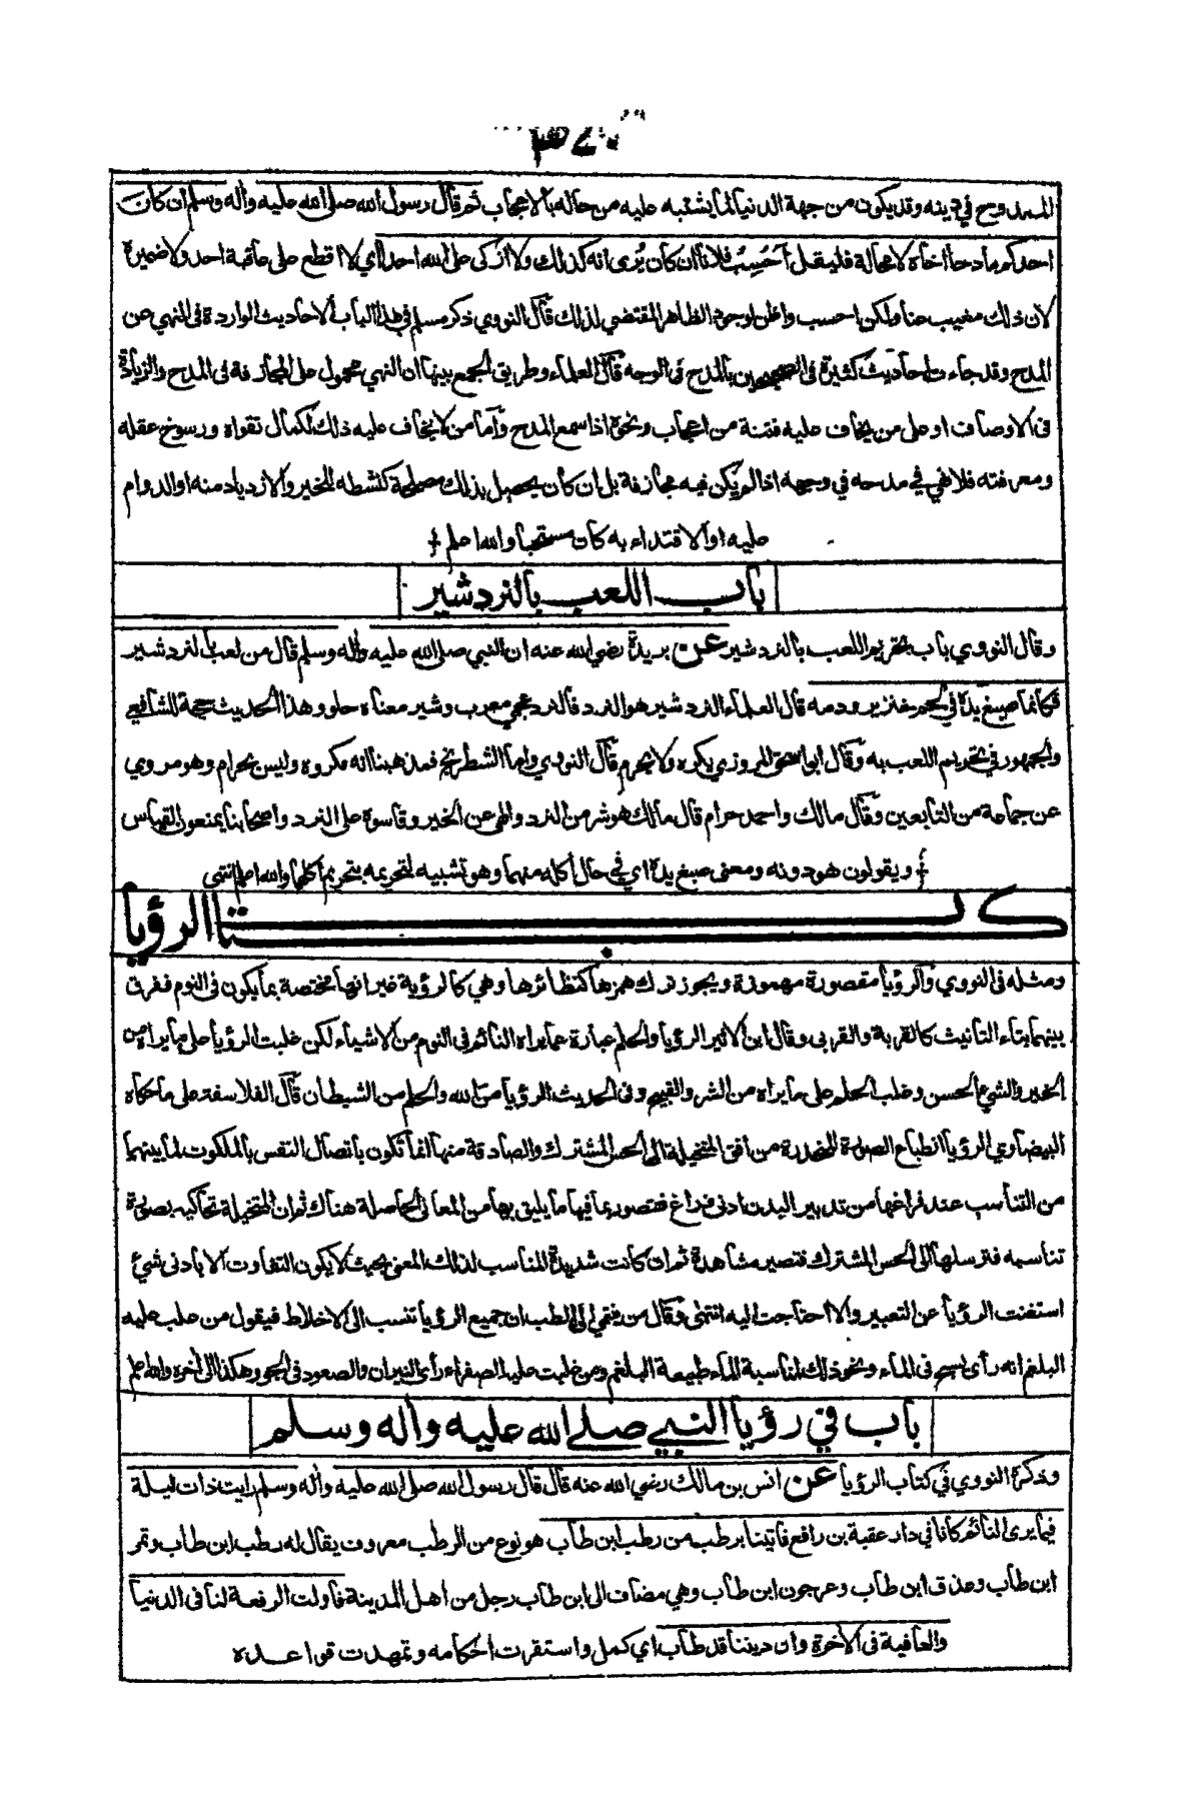 الممدوح في دينه وقد يكون من جهة الدنيا لما يشتبه عليه من حاله بالاعجاب ثم قال رسول الله صلى الله عليه وأله وسلم ان كان
احدكم مادحا أخاه لا محالة فليقل أحسب فلانا ان كان يرى انه كذلك ولا ازكى على الله احدا اي لا اقطع على عاقبة احد ولا ضميره
لان ذلك مغيب عنا ولكن احسب واظن لوجود الظاهر المقتضي لذلك قال النووي ذكر مسلم في هذا الباب الاحاديث الواردة في النهي عن
المدح وقد جاءت احاديث كثيرة في الصحيحين بالمدح في الوجه قال العلماء وطريق الجمع بينها ان النهي محمول على المجازفة في المدح والزيادة
في الاوصاف او على من يخاف عليه فتنة من اعجاب ونحوه اذا سمع المدح وأما من لا يخاف عليه ذلك لكمال تقواه ورسوخ عقله
ومعرفته فلا نهي في مدحه في وجهه اذا لم يكن فيه مجازفة بل ان كان يحصل بذلك مصلحة كنشطه للخير والازدياد منه او الدوام
عليه او الاقتداء به كان مستحبا والله اعلم
باب اللعب بالنردشير
وقال النووي باب تحريم اللعب بالنردشير عن بريدة رضي الله عنه ان النبي صلى الله عليه وأله وسلم قال من لعب بالنردشير
فكأنما صبغ يده في لحم خنزير ودمه قال العلماء النردشير هو النرد فالنرد عجمي معرب وشير معناه حلو وهذا الحديث حجة للشافعي
والجمهور في تحريم اللعب به وقال ابو اسحق المروزي يكره ولا يحرم قال النووي واما الشطرنج فمذهبنا انه مكروه وليس بحرام وهو مروي
عن جماعة من التابعين وقال مالك واحمد حرام قال مالك هو شر من النرد والهى عن الخير وقاسوه على النرد واصحابنا يمنعون القياس
ويقولون هو دونه ومعنى صبغ يده اي في حال أكله منهما وهو تشبيه لتحريمه بتحريم أكلهما والله اعلم انتهى
كتاب الرؤيا
ومثله في النووي والرؤيا مقصورة مهموزة ويجوز ترك همزها كنظائرها وهي كالرؤية غير انها مختصة بما يكون في النوم ففرق
بينهما بتاء التانيث كالقربة والقربى وقال ابن الاثير الرؤيا والحلم عبارة عما يراه النائم في النوم من الاشياء لكن غلبت الرؤيا على ما يراه من
الخير والشئ الحسن وغلب الحلم على ما يراه من الشر والقبيح وفي الحديث الرؤيا من الله والحلم من الشيطان قال الفلاسفة على ما حكاه
البيضاوي الرؤيا انطباع الصورة المنحدرة من افق المتخيلة الى الحس المشترك والصادقة منها انما تكون باتصال النفس بالملكوت لما بينهما
من التناسب عند فراغها من تدبير البدن ادنى فراغ فتتصور بما فيها ما يليق بها من المعاني الحاصلة هناك ثم ان المتخيلة تحاكيه بصورة
تناسبه فترسلها الى الحس المشترك فتصير مشاهدة ثم ان كانت شديدة المناسب لذلك المعنى بحيث لا يكون التفاوت الا بادنى شئ
استغنت الرؤيا عن التعبير والا احتاجت اليه انتهى وقال من ينتمي الى الطب ان جميع الرؤيا تنسب الى الاخلاط فيقول من غلب عليه
البلغم انه رأى يسبح في الماء ونحو ذلك لمناسبة الماء طبيعة البلغم ومن غلبت عليه الصفراء رأى النيران والصعود في الجو وهكذا الى أخره والله اعلم
باب في رؤيا النبي صلى الله عليه وأله وسلم
وذكره النووي في كتاب الرؤيا عن انس بن مالك رضي الله عنه قال قال رسول الله صلى الله عليه وأله وسلم رايت ذات ليلة
فيما يرى النائم كانا في دار عقبة بن رافع فاتينا برطب من رطب ابن طاب هو نوع من الرطب معروف يقال له رطب ابن طاب وتمر
ابن طاب وعذق ابن طاب وعرجون ابن طاب وهي مضاف الى ابن طاب رجل من اهل المدينة فاولت الرفعة لنا في الدنيا
والعافية في الاخرة وان ديننا قد طاب اي كمل واستقرت احكامه وتمهدت قواعده